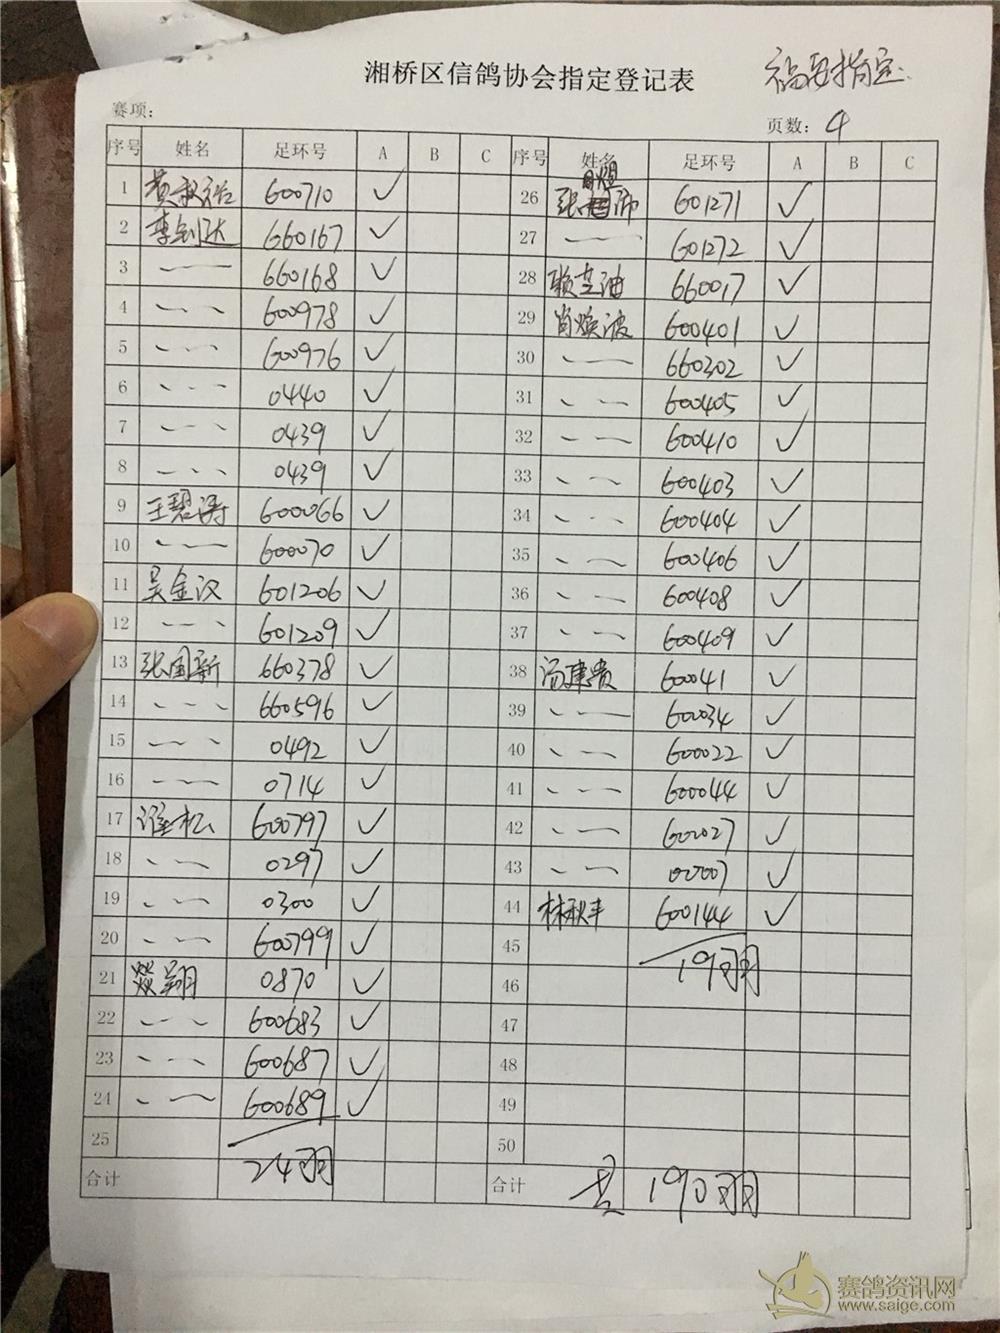 湘桥区信鸽协会指定登记表
福安指定
赛项:
页数: 4
序号 姓名 足环号 A B C
1 黄 600710 ✓
2 李剑达 660167 ✓
3 660168 ✓
4 600978 ✓
5 600976 ✓
6 0440 ✓
7 0439 ✓
8 0439 ✓
9 王碧涛 600066 ✓
10 600070 ✓
11 吴金汉 601206 ✓
12 601209 ✓
13 张国新 660378 ✓
14 660596 ✓
15 0492 ✓
16 0714 ✓
17 松 600797 ✓
18 0297 ✓
19 0300 ✓
20 600799 ✓
21 燚翔 0870 ✓
22 600683 ✓
23 600687 ✓
24 600689 ✓
25
24羽
合计
序号 姓名 足环号 A B C
26 张 601271 ✓
27 601272 ✓
28 赖 660017 ✓
29 肖焕波 600401 ✓
30 660302 ✓
31 600405 ✓
32 600410 ✓
33 600403 ✓
34 600404 ✓
35 600406 ✓
36 600408 ✓
37 600409 ✓
38 汤建贵 600041 ✓
39 600034 ✓
40 600022 ✓
41 600044 ✓
42 600027 ✓
43 ✓
44 林秋丰 600144 ✓
45
19羽
46
47
48
49
50
合计 共 190羽
赛鸽资讯网
www.saige.com